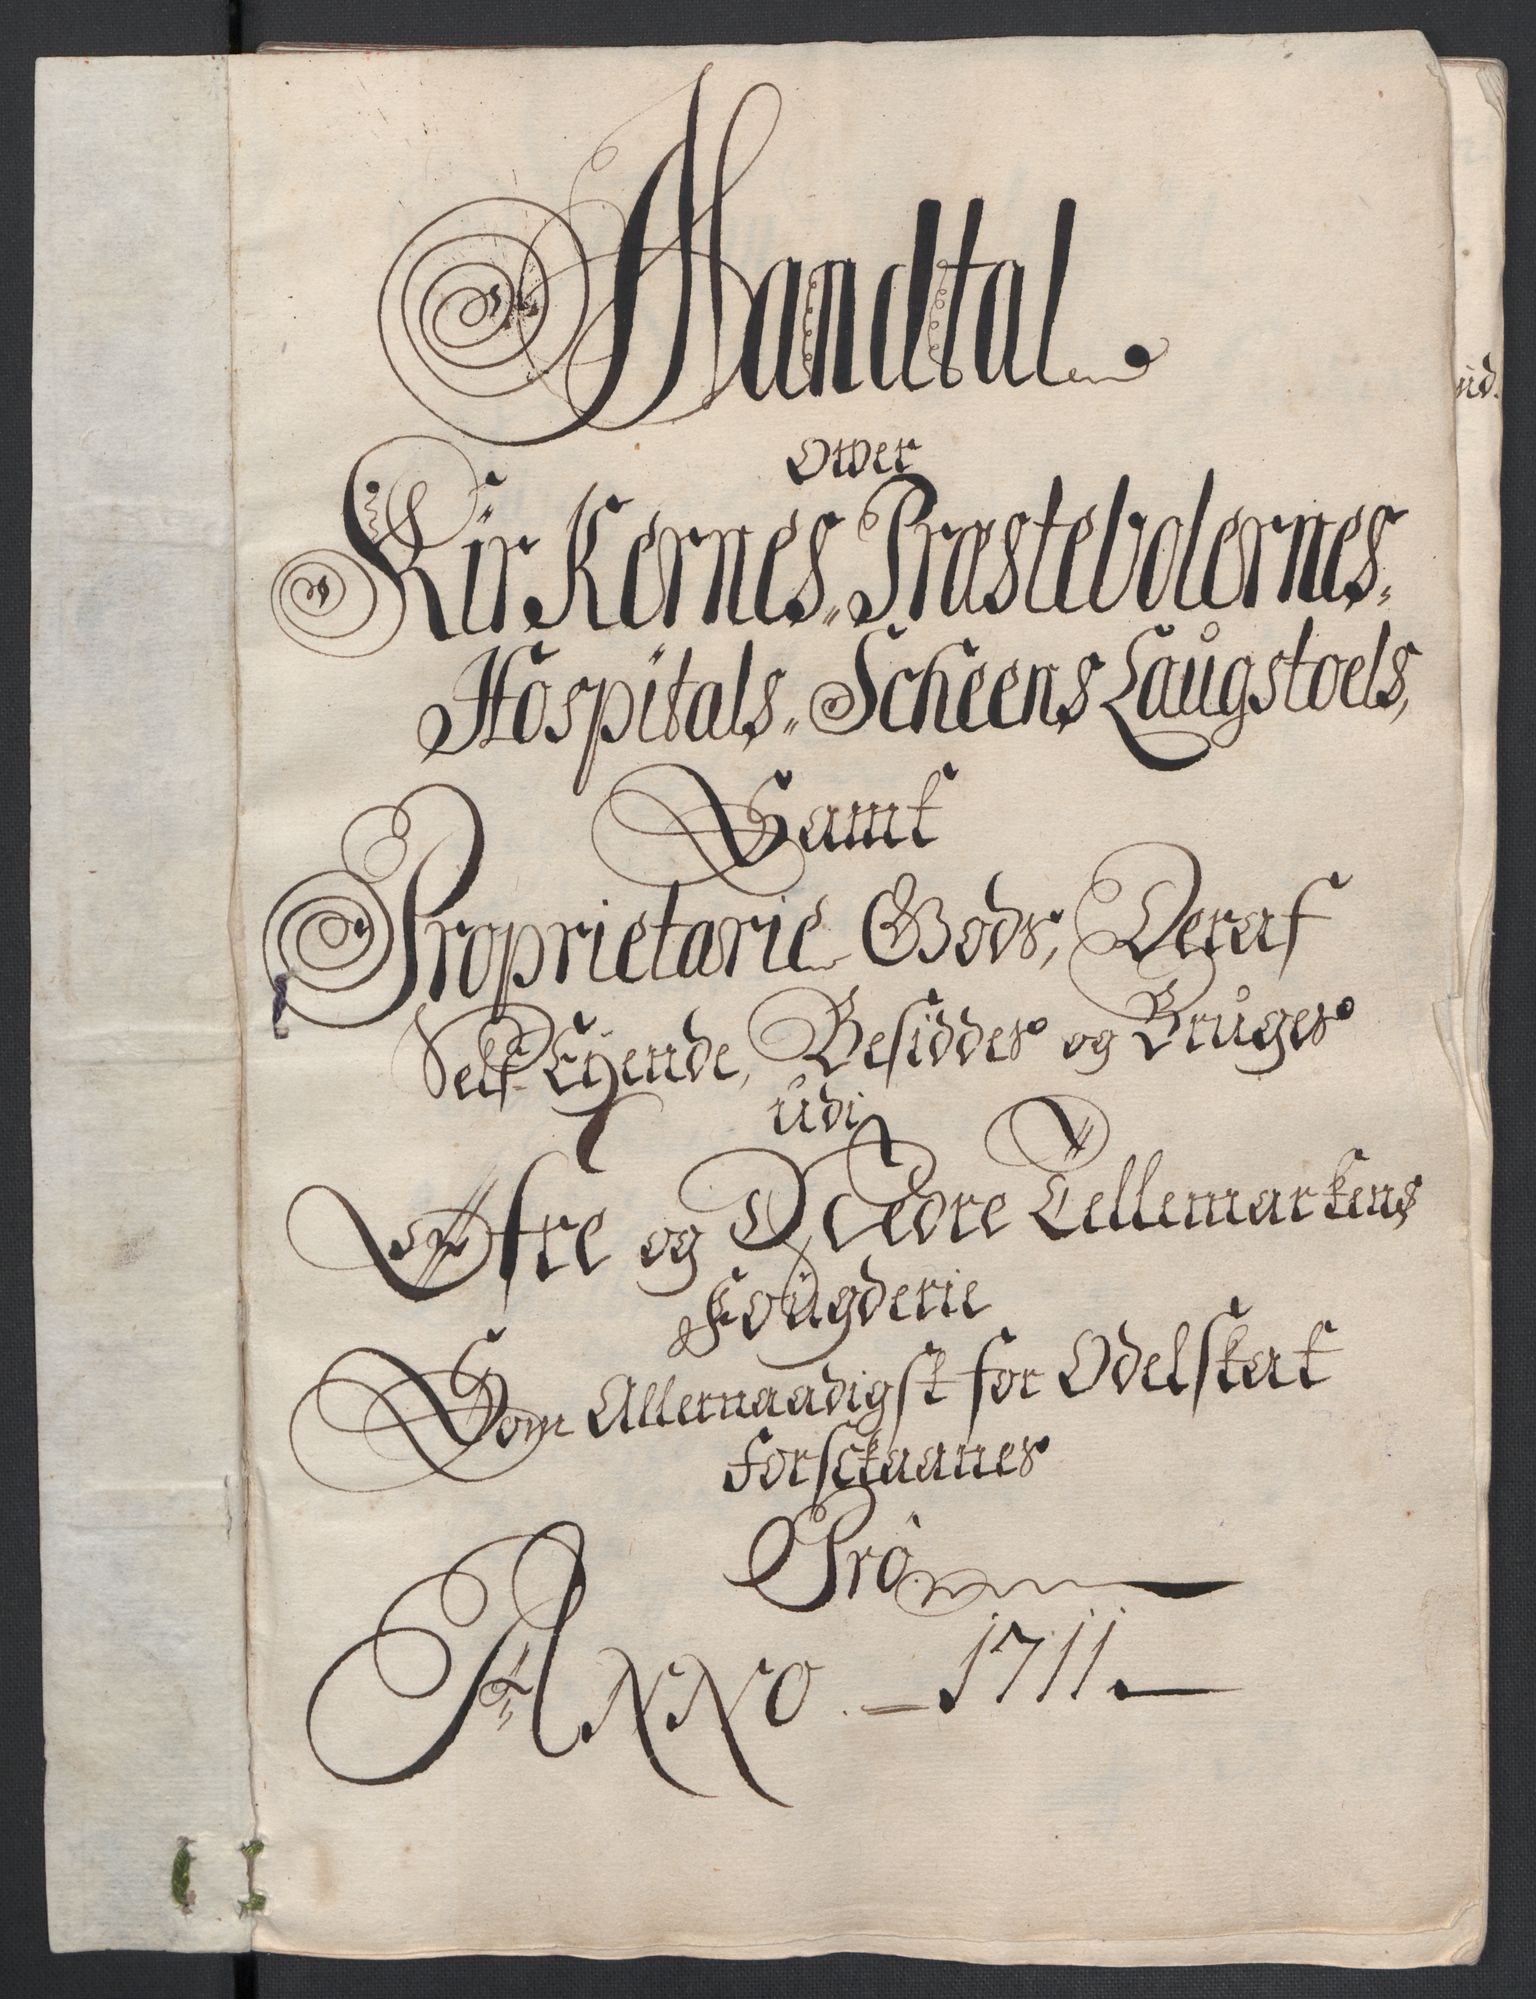 Mandtal.
Over
KirKernes, Præstebolernes,
Hospitals, Scheens Laůgstoels,
Samt
Proprietarie Gods, Deraf
Self Eÿende, Besiddes og Brůges
ůdi
Øfre og Nedre Tellemarkens
Foůgderie
Som Allernaadigst for Odelskat
forsckaanes
Pro
ANNO - 1711.